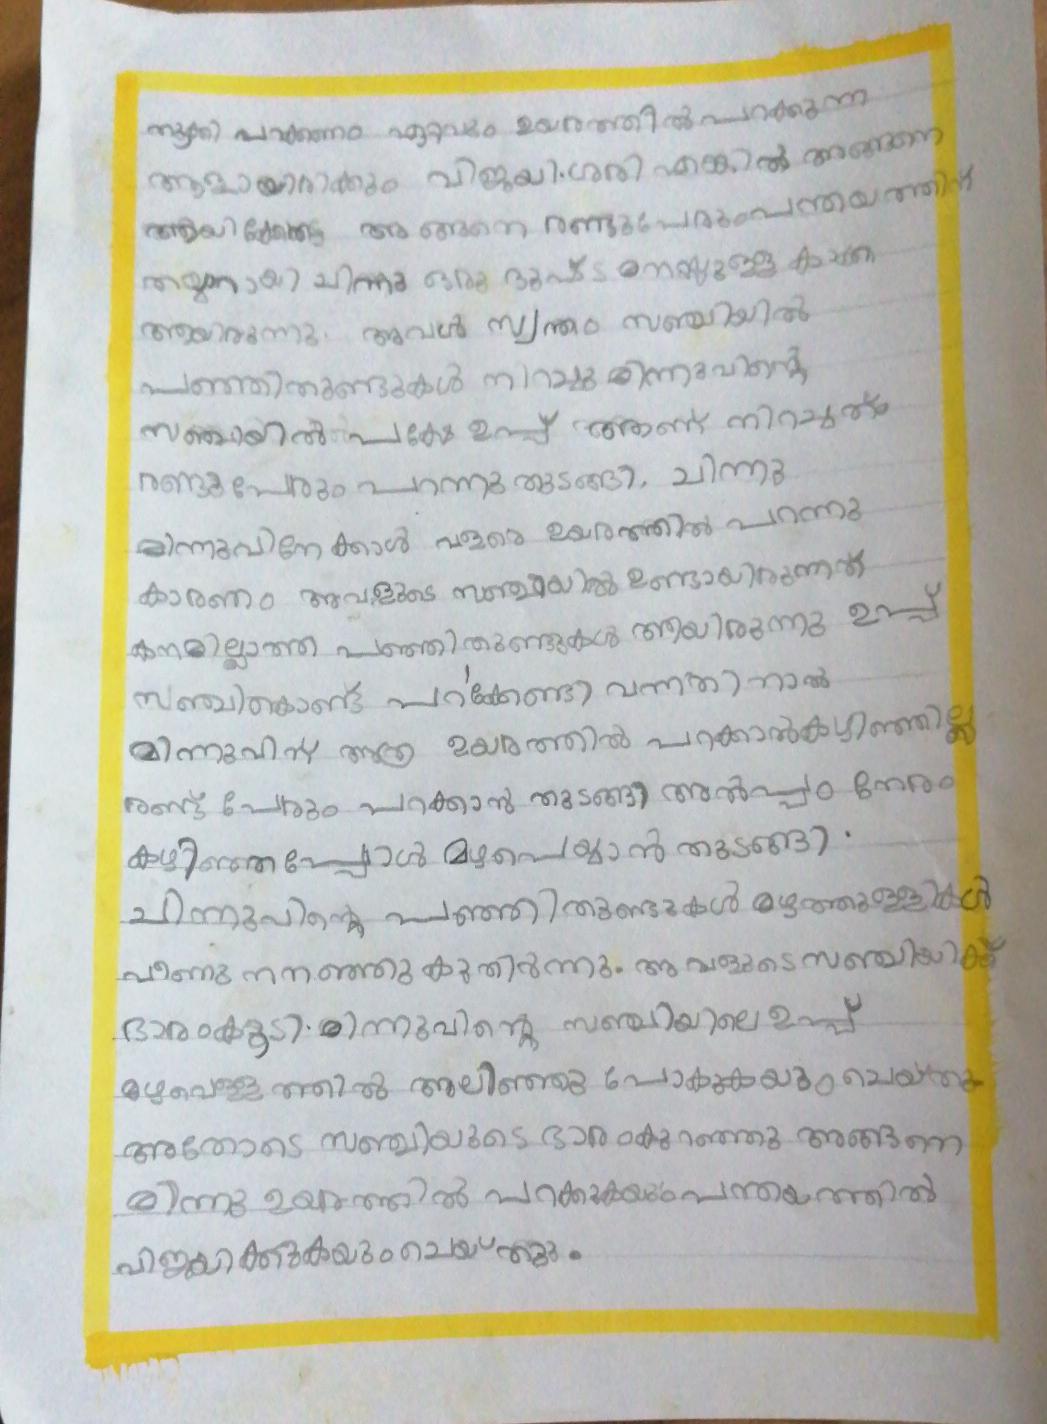 തൂക്കി പറക്കണം ഏറ്റവും ഉയരത്തിൽ പറക്കുന്ന
ആളായിരിക്കും വിജയി. ശരി എങ്കിൽ അങ്ങനെ
ആയിക്കോട്ടെ അങ്ങനെ രണ്ടുപേരും പന്തയത്തിന്
തയ്യാറായി ചിന്നു ഒരു ദുഷ്ട മനസ്സുള്ള കാക്ക
ആയിരുന്നു. അവൾ സ്വന്തം സഞ്ചിയിൽ
പഞ്ഞിതുണ്ടുകൾ നിറച്ചു മിന്നുവിന്റെ
സഞ്ചിയിൽ പക്ഷേ ഉപ്പ് ആണ് നിറച്ചത്
രണ്ടുപേരും പറന്നു തുടങ്ങി. ചിന്നു
മിന്നുവിനേക്കാൾ വളരെ ഉയരത്തിൽ പറന്നു
കാരണം അവളുടെ സഞ്ചിയിൽ ഉണ്ടായിരുന്നത്
കനമില്ലാത്ത പഞ്ഞിതുണ്ടുകൾ ആയിരുന്നു ഉപ്പ്
സഞ്ചികൊണ്ട് പറക്കേണ്ടി വന്നതിനാൽ
മിന്നുവിന് അത്ര ഉയരത്തിൽ പറക്കാൻകഴിഞ്ഞില്ല
രണ്ട് പേരും പറക്കാൻ തുടങ്ങി അൽപ്പം നേരം
കഴിഞ്ഞപ്പോൾ മഴപെയ്യാൻ തുടങ്ങി.
ചിന്നുവിന്റെ പഞ്ഞിതുണ്ടുകൾ മഴത്തുള്ളികൾ
വീണു നനഞ്ഞു കുതിർന്നു. അവളുടെ സഞ്ചിയ്ക്ക്
ഭാരംകൂടി. മിന്നുവിന്റെ സഞ്ചിയിലെ ഉപ്പ്
മഴവെള്ളത്തിൽ അലിഞ്ഞു പോകുകയും ചെയ്തു
അതോടെ സഞ്ചിയുടെ ഭാരം കുറഞ്ഞു അങ്ങനെ
മിന്നു ഉയരത്തിൽ പറക്കുകയും പന്തയത്തിൽ
വിജയിക്കുകയും ചെയ്തു.